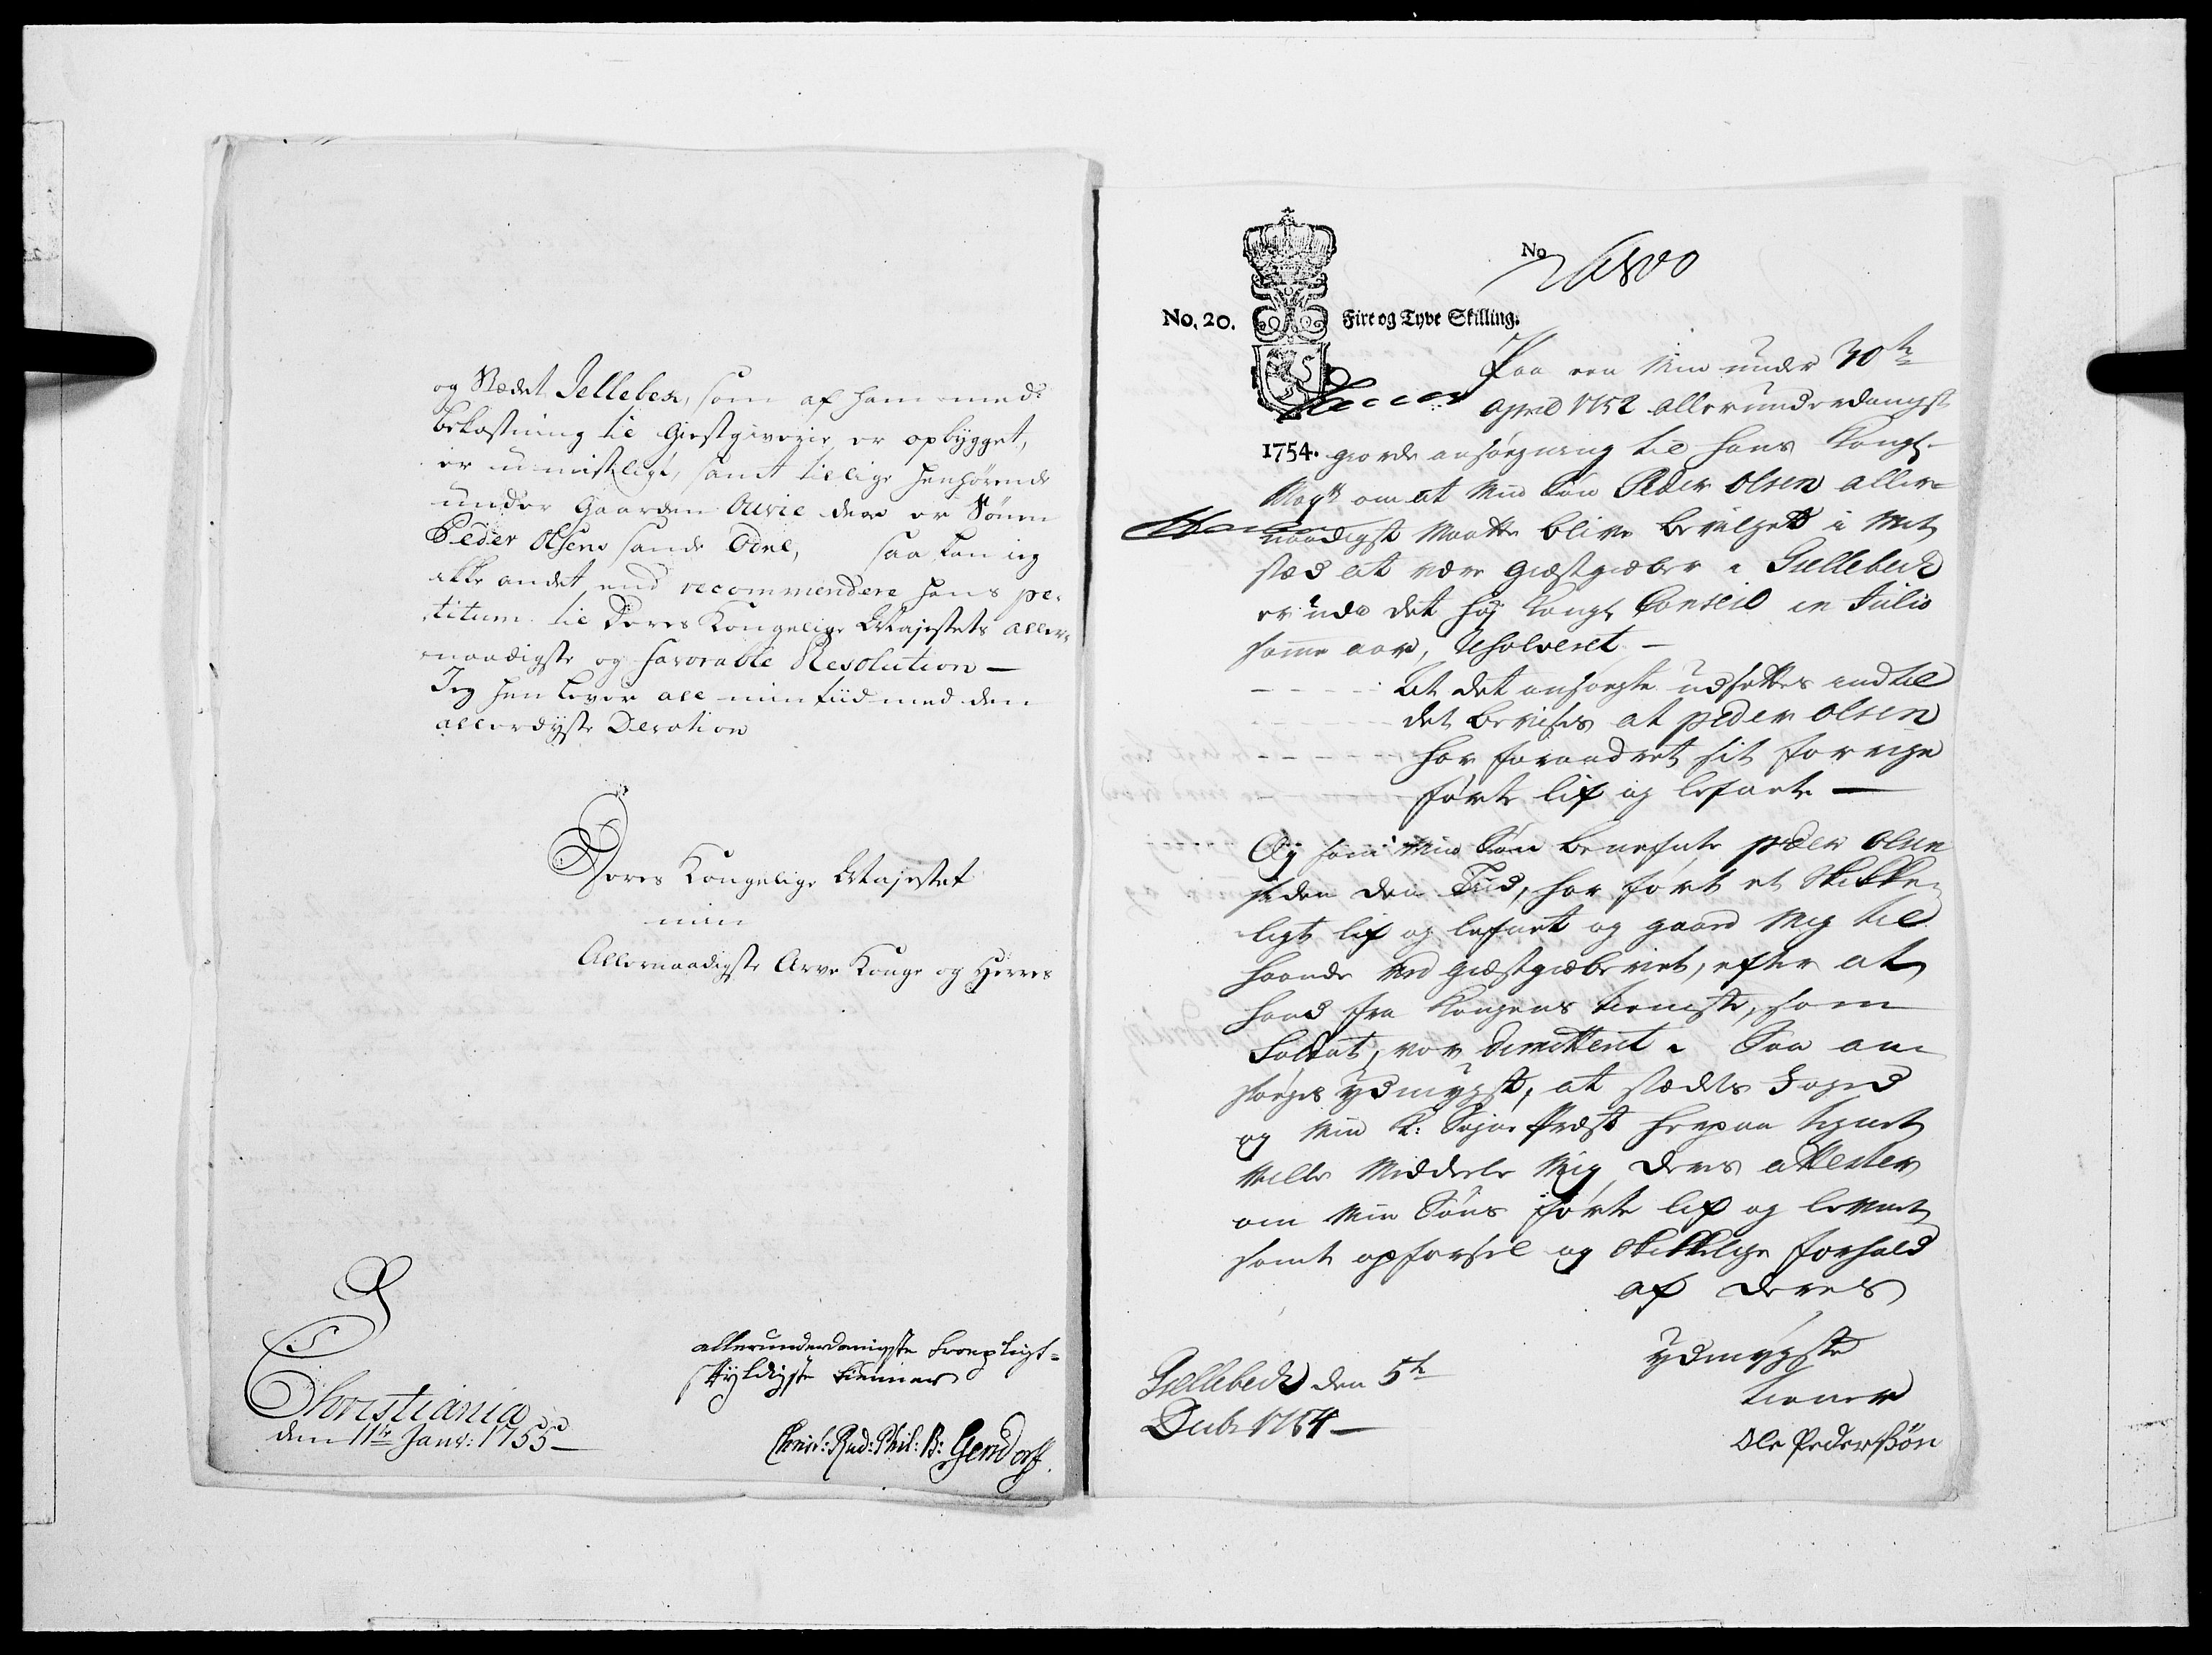 og Stædet Jellebek, som af ham med
bekostning til Giestgiverie er opbygget,
er umisteligt, samt tillige henhørende
under Gaarden Ovrie der er Sønen
Peder Olsens sande Odel, saa kan ieg
ikke andet end recommendere hans pe-
titum til Deres Kongelige Majestets aller-
naadigste og favorable Resolution —
Jeg henlever all min tiid med den
allerdybste Devotion
Deres Kongelige Majestet
min
Allernaadigste Arve Konge og Herres
allerunderdanigste troepligt-
skyldigste tienner
Christiania
den 11te Janv: 1755 —
Christ: Rud: Phil: B: Gersdorff.
No
No. 20. Fire og Tyve Skilling.
Paa een Min under 30te
April 1752 allerunderdanigst
1754. giorde ansøgning til Hans Kongl.
Mayts om at Min Søn Peder Olsen aller-
naadigst Maatte blive bevilget i Mit
stæd at være giæstgiæber i Gellebeck
er udi det høj Kongl. Conseil in Julio
samme aar, Resolveret —
At det ansøgte udsættes indtil
det bevises at peder olsen
har forandret sit forrige
førte lif og lefnet —
Og som Min Søn benefnte peder olsen
siden den Tiid, har ført et Skikke-
ligt lif og lefnet og gaaed Mig til
haande ved giæstgiæberiet, efter at
hand fra Kongens tieneste, som
Soldat, var dimitterit. Saa an-
søges ydmygst, at stædets Foged
og Min K: Sogne Præst herpaa tegnet
Ville Meddeele Mig deres attester
om Min Søns førte lif og lefnet
samt opførsel og Skikkelige forhold
af deres
ydmygste
tienner
Gellebeck den 5te
Decbr 1754 —
Ole Pedersøn